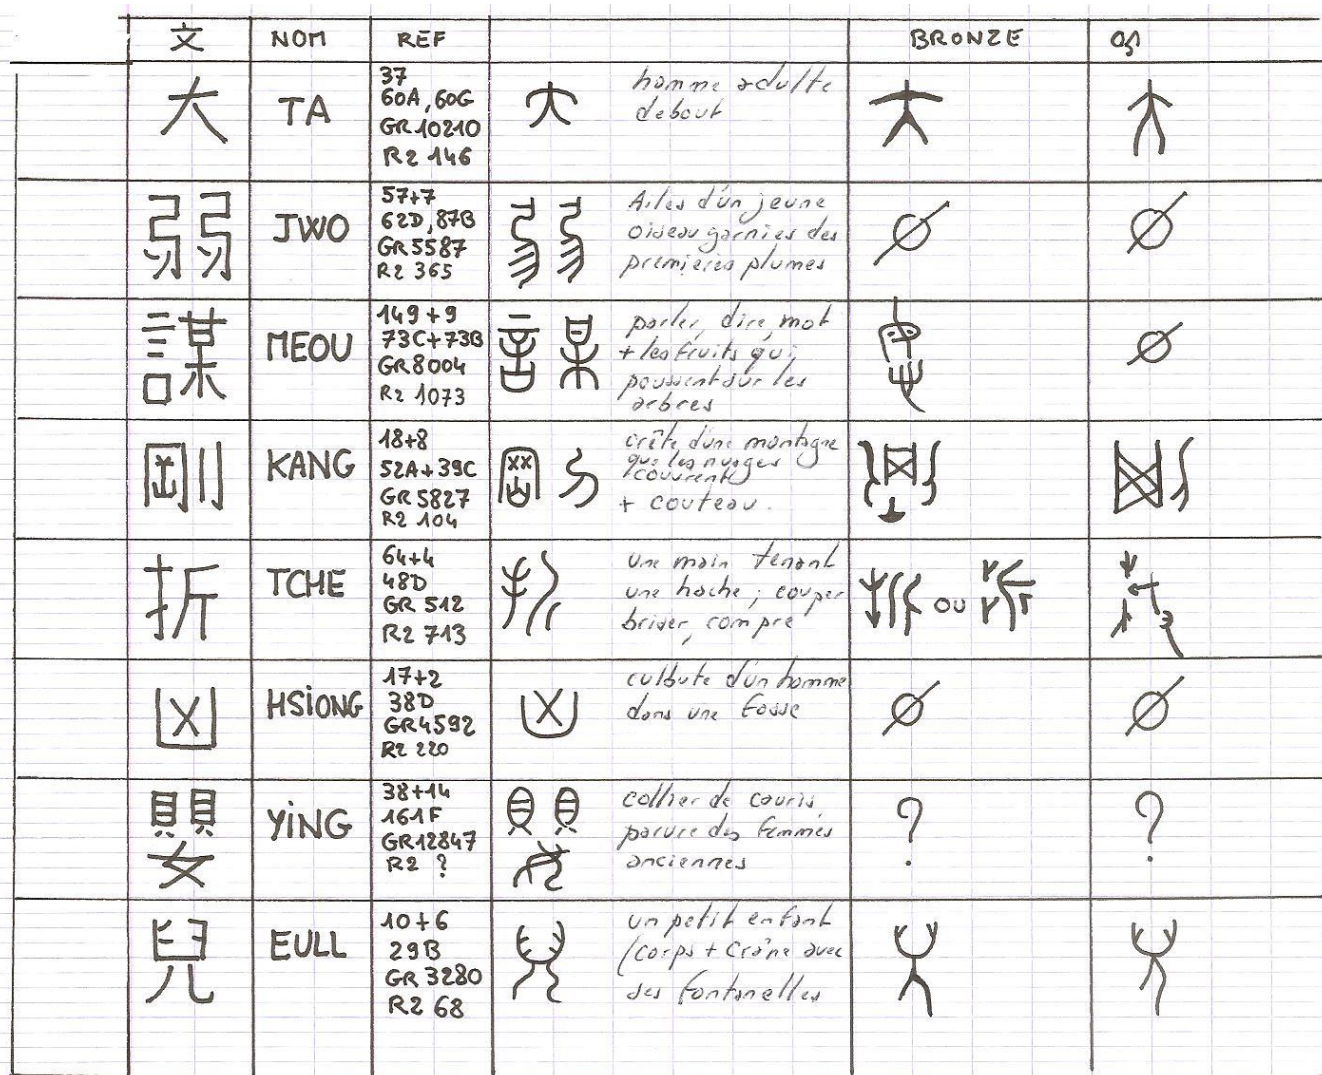 文 NOM REF BRONZE OS
大 TA
37
60A, 60G
GR 10210
R2 146
homme adulte
debout
弱 JWO
57+7
62D, 87B
GR 5587
R2 365
Ailes d'un jeune
oiseau garnies des
premières plumes
謀 MEOU
149+9
73C+73B
GR 8004
R2 1073
parler, dire, mot
+ les fruits qui
poussent sur les
arbres
剛 KANG
18+8
52A+39C
GR 5827
R2 104
crête d'une montagne
que les nuages
couvrent
+ couteau.
折 TCHE
64+4
48D
GR 512
R2 713
une main tenant
une hache ; couper
briser, compre
OU
凶 HSIONG
17+2
38D
GR 4592
R2 220
culbute d'un homme
dans une fosse
嬰 YING
38+14
161F
GR 12847
R2 ?
collier de cauris
parure des femmes
anciennes
?
?
兒 EULL
10+6
29B
GR 3280
R2 68
un petit enfant
(corps + crâne avec
des fontanelles